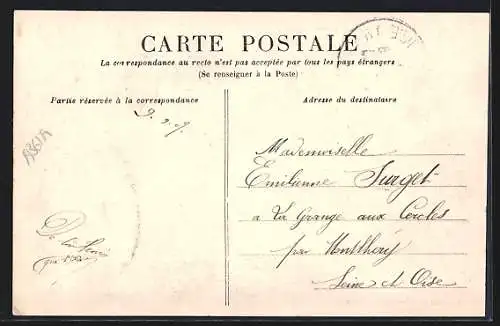 CARTE POSTALE
La correspondance au recto n'est pas acceptée par tous les pays étrangers
(Se renseigner à la Poste)
Partie réservée à la correspondance
Adresse du destinataire
9. 3. 09.
Mademoiselle
Emilienne Surget
a La Grange aux Cercles
par Montlhéry
Seine et Oise